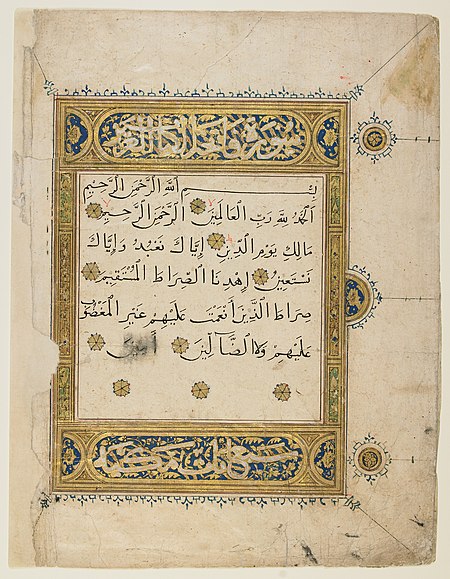 سورة فاتحة الكتاب
بِسْمِ اللَّهِ الرَّحْمَنِ الرَّحِيمِ
اَلْحَمْدُ لِلَّهِ رَبِّ الْعَالَمِينَ الرَّحْمَنِ الرَّحِيمِ
مَالِكِ يَوْمِ الدِّينِ إِيَّاكَ نَعْبُدُ وَإِيَّاكَ
نَسْتَعِينُ اِهْدِنَا الصِّرَاطَ الْمُسْتَقِيمَ
صِرَاطَ الَّذِينَ أَنْعَمْتَ عَلَيْهِمْ غَيْرِ الْمَغْضُوبِ
عَلَيْهِمْ وَلَا الضَّآلِّينَ أمين